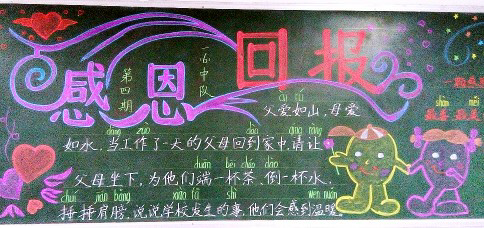 感恩 回报
第四期
一(6)中队
ài rú
父爱如山,母爱
dāng zuò dào qǐng ràng
如水,当工作了一天的父母回到家中,请让
duān bēi chá dào
父母坐下,为他们端一杯茶、倒一杯水,
chuí jiān bǎng xiào fā shì wēn nuǎn
捶捶肩膀,说说学校发生的事,他们会感到温暖。